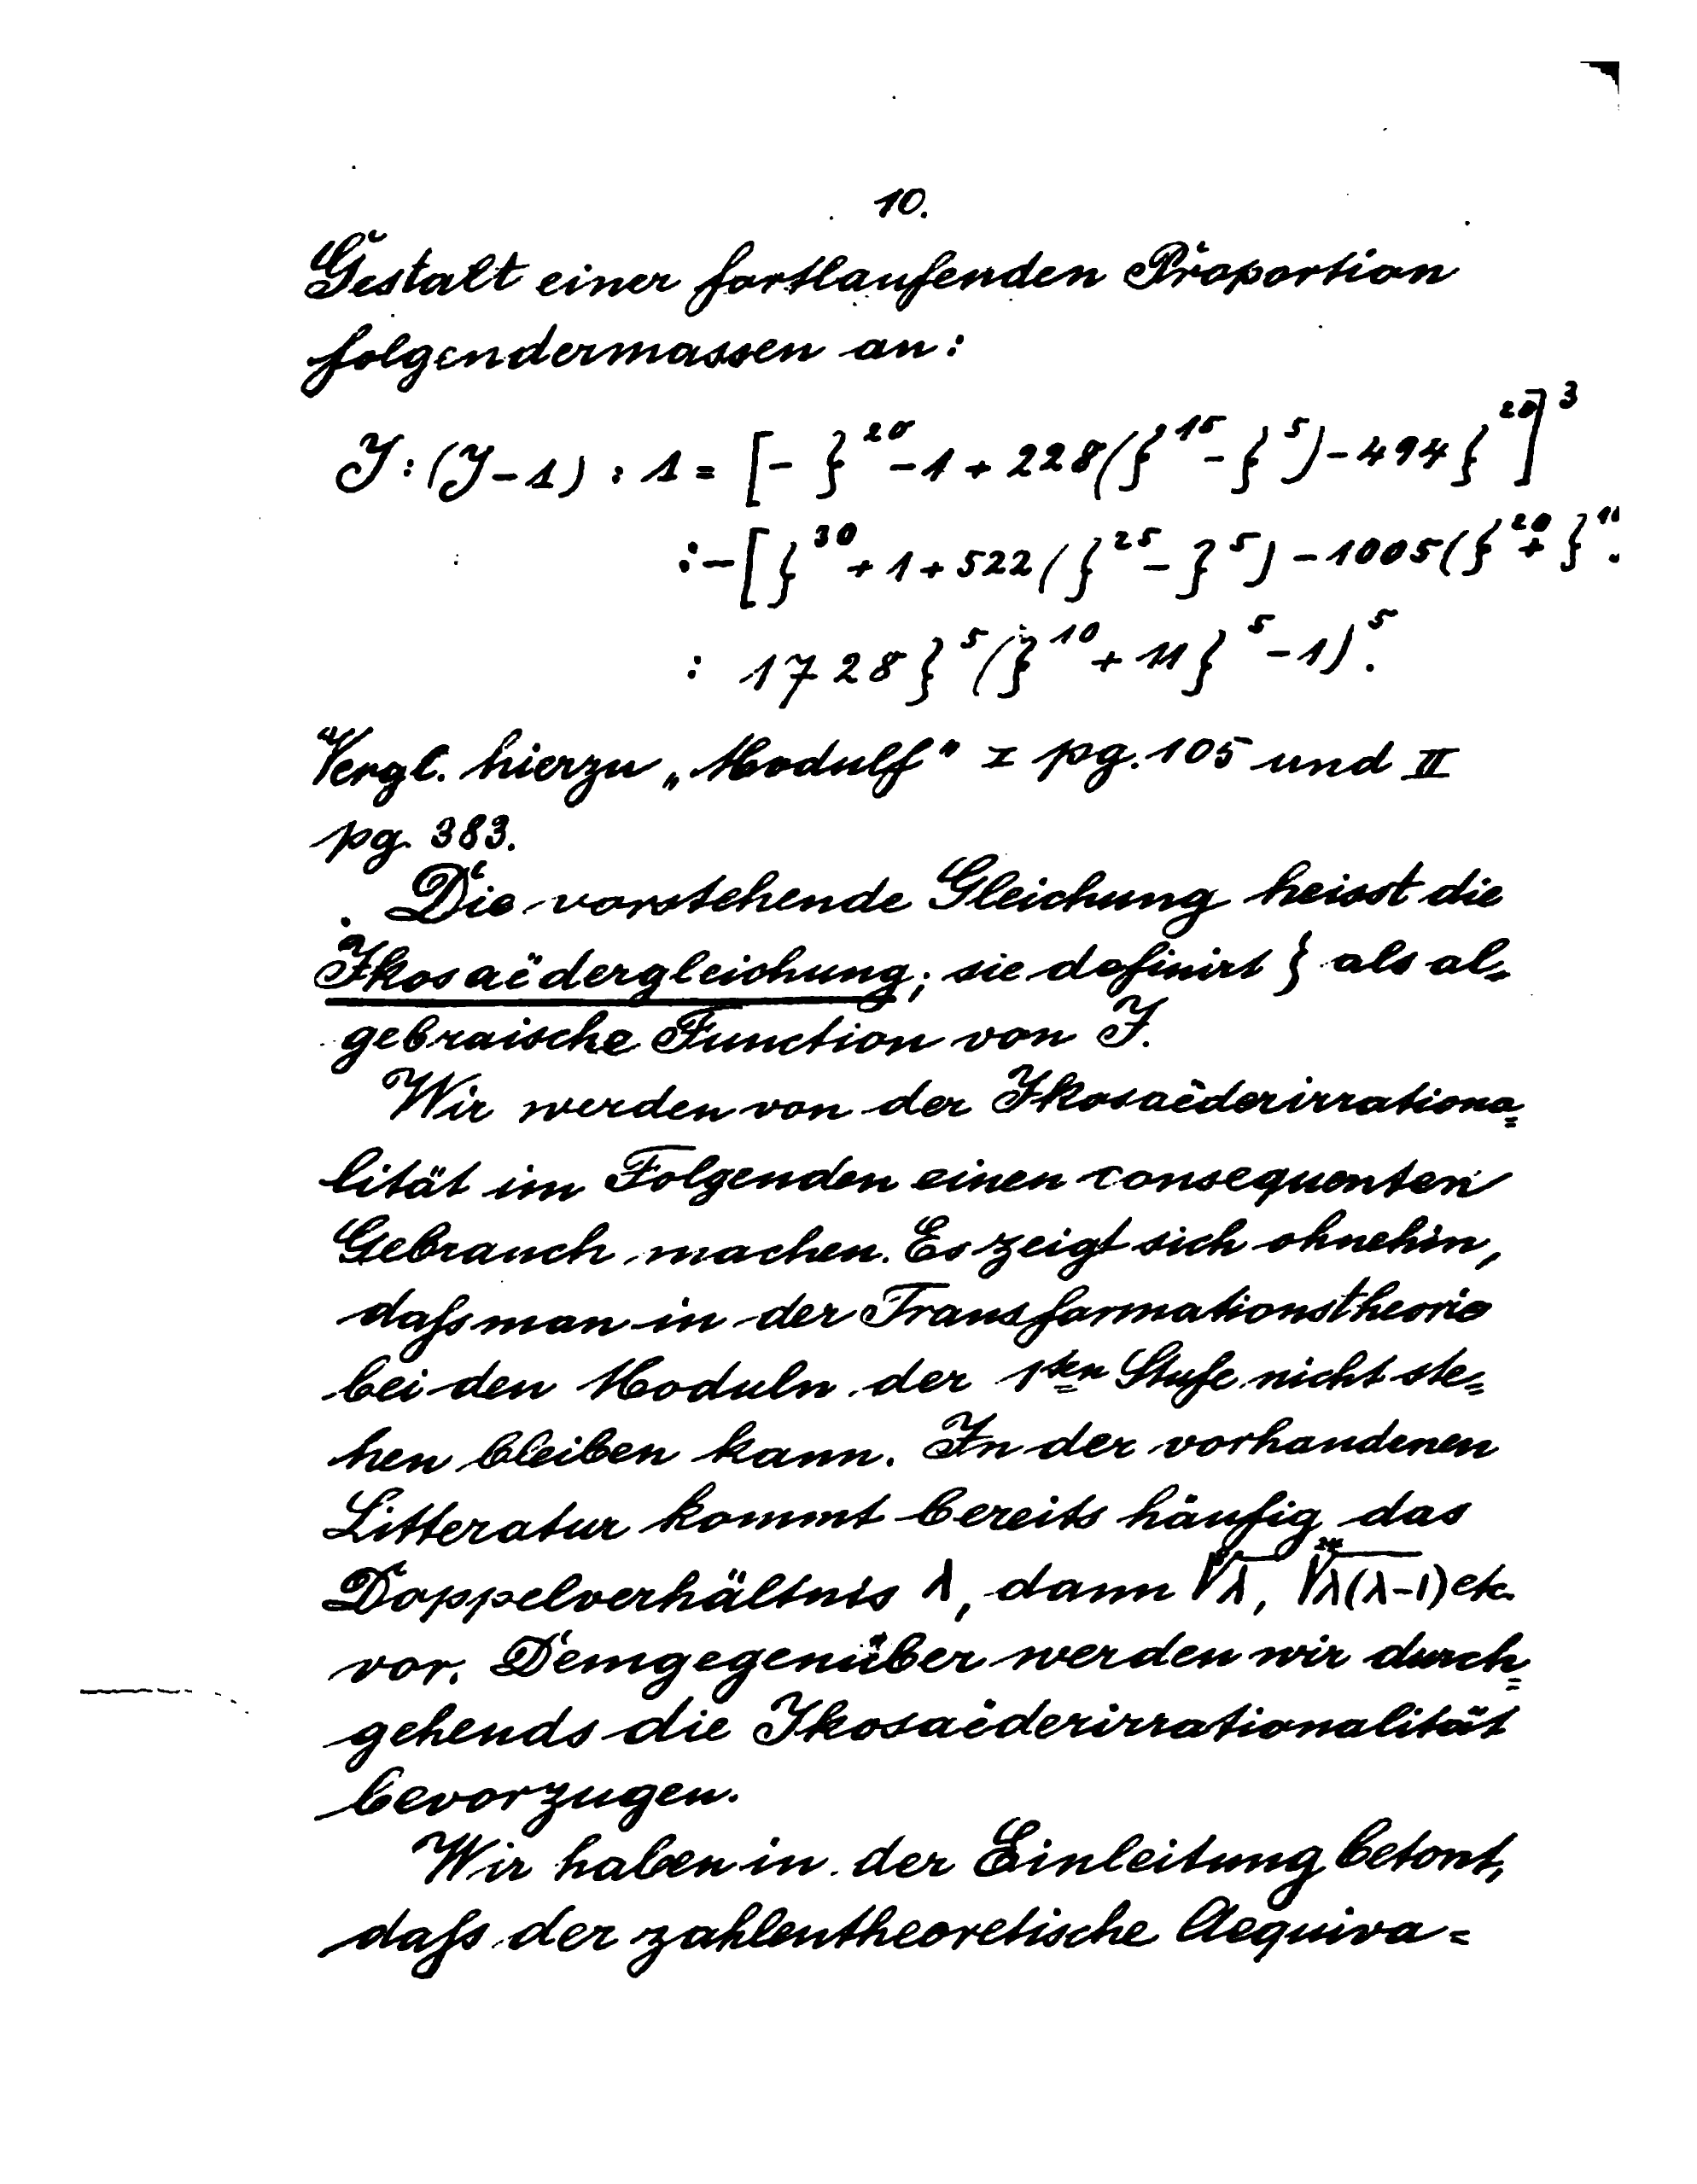 10.
Gestalt einer fortlaufenden Proportion
folgendermassen an:
J : (J-1) : 1 = [- ζ^20 - 1 + 228 (ζ^15 - ζ^5) - 494 ζ^20]^3
: - [ζ^30 + 1 + 522 (ζ^25 - ζ^5) - 1005 (ζ^20 + ζ^1
: 1728 ζ^5 (ζ^10 + 11 ζ^5 - 1)^5.
Vergl. hierzu „Modulf" I pg. 105 und II
pg. 383.
Die vorstehende Gleichung heisst die
Ikosaëdergleichung; sie definirt ζ als al=
gebraische Function von J.
Wir werden von der Ikosaëderirrationa=
lität im Folgenden einen consequenten
Gebrauch machen. Es zeigt sich ohnehin,
dafs man in der Transformationstheorie
bei den Moduln der 1ten Stufe nicht ste=
hen bleiben kann. In der vorhandenen
Litteratur kommt bereits häufig das
Doppelverhältnis λ, dann ∜λ, ²⁴√λ(λ-1) etc.
vor. Demgegenüber werden wir durch=
gehends die Ikosaëderirrationalität
bevorzugen.
Wir haben in der Einleitung betont,
dafs der zahlentheoretische Aequiva=